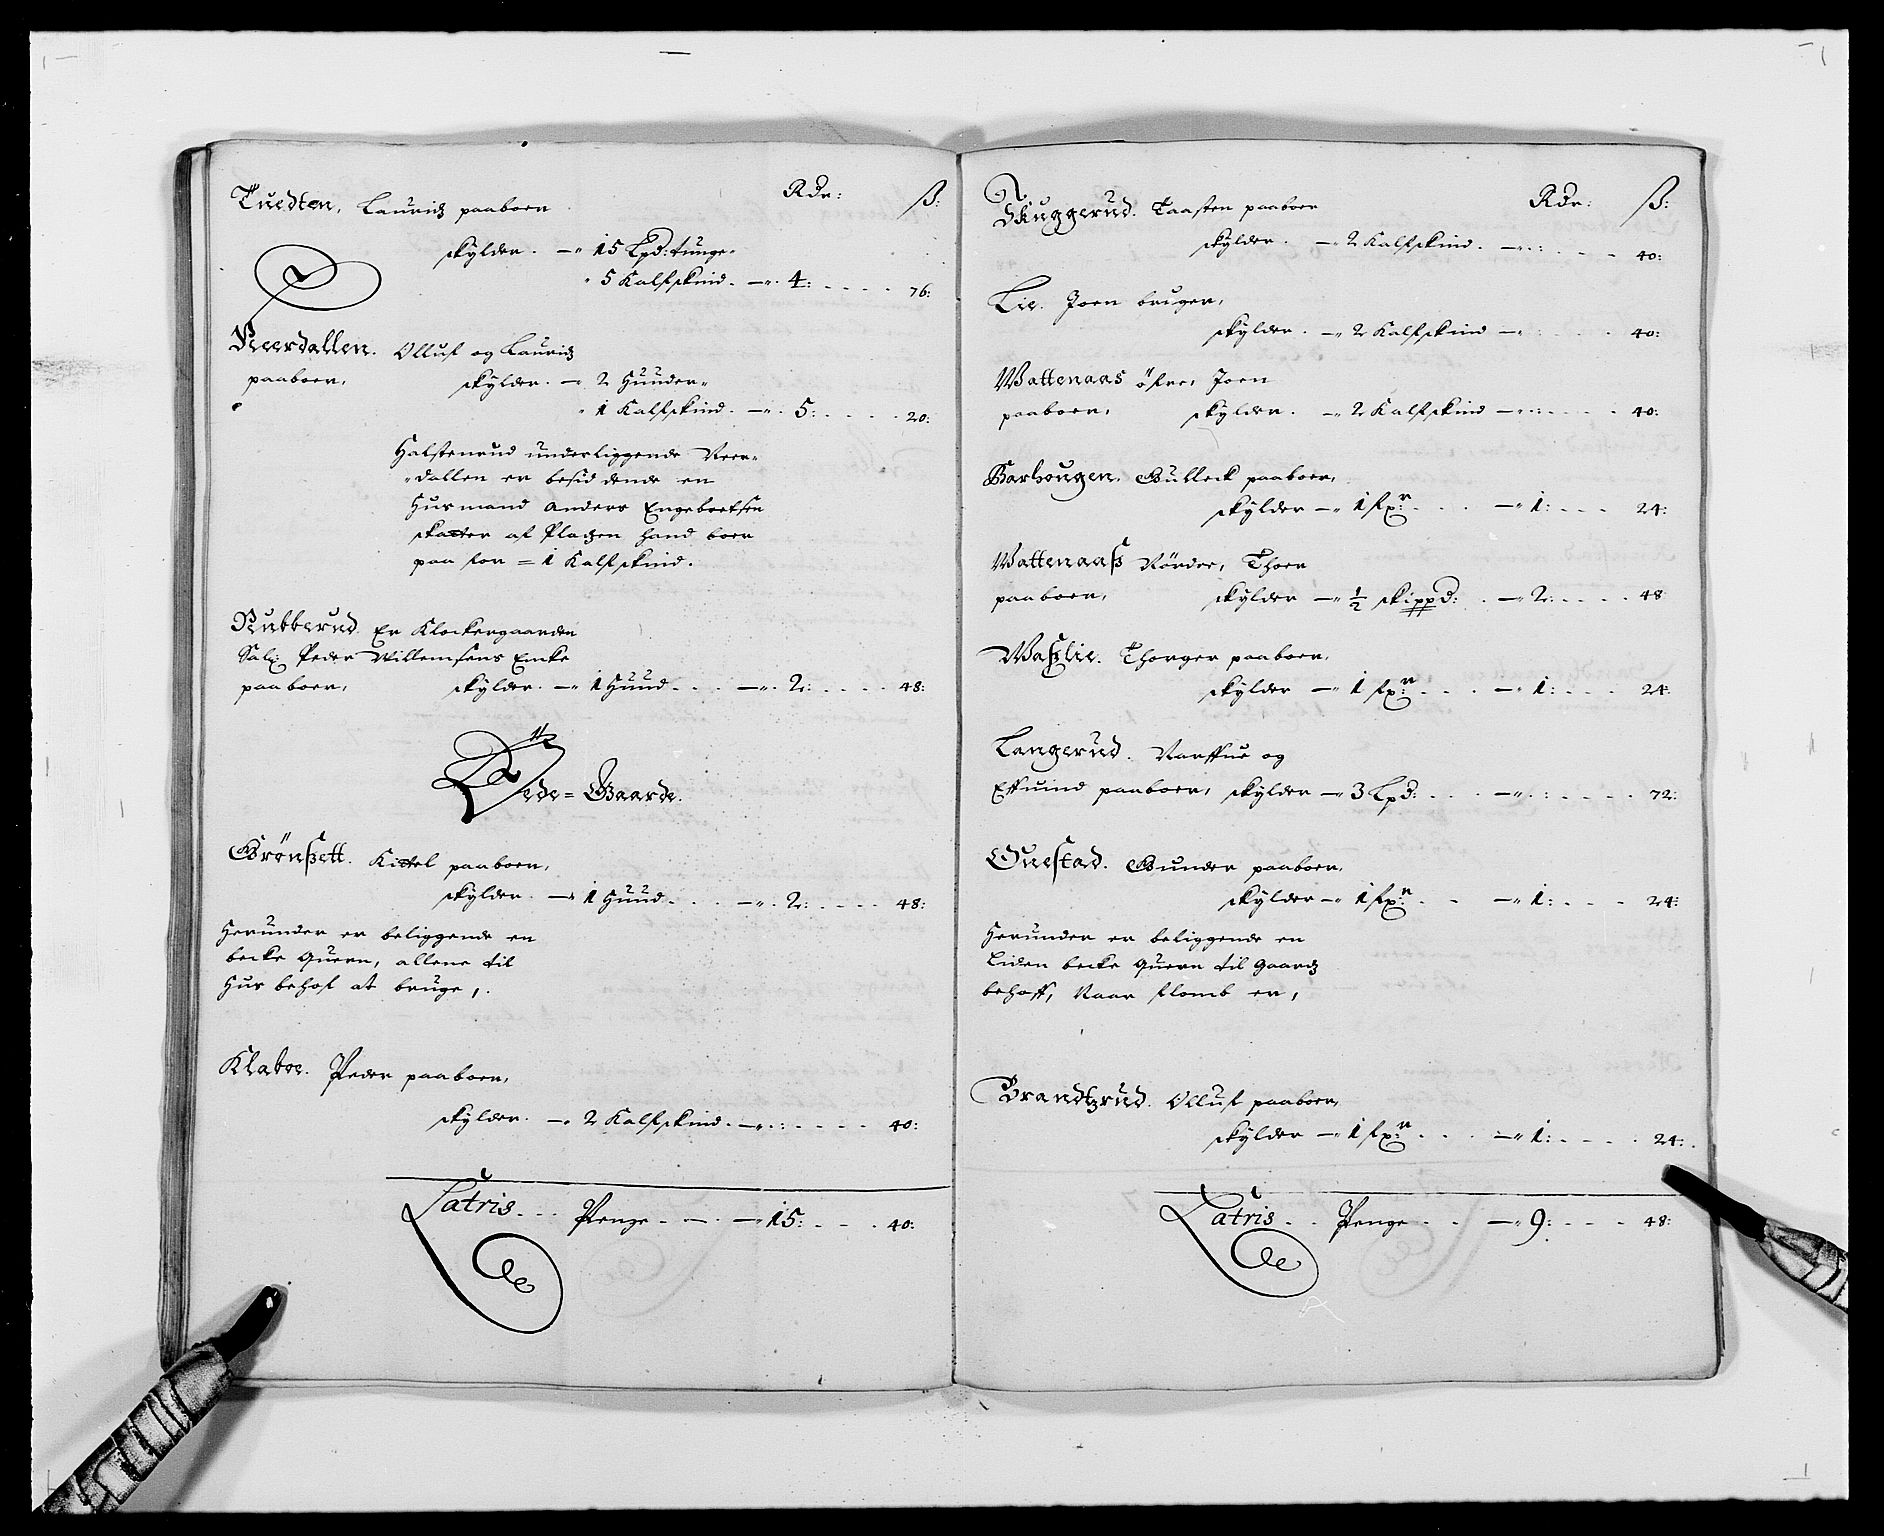 Rdr: ß:
Tuedten, Lauridz paaboer
skylder. — 15 Lpd: tunge
5 Kalfskind. — 4: 76:
Neerdallen. Olluf og Lauridz
paaboer, skylder. — 2 Huuder
1 Kalfskind. — 5: 20:
Halstenrud underliggende Neer-
dallen er besiddende en
Husmand Anders Engebretsen
skatter af Pladzen hand boer
paa for = 1 Kalfskind.
Rukkerud Er Klockergaarden
Sal: Peder Willemsens Encke
paaboer, skylder. — 1 Huud — 2: 48:
Øde = Gaarde.
Grönßett. Kittel paaboer,
skylder. — 1 Huud — 2: 48:
Herunder er beliggende en
becke quern, allene til
Hus behof at bruge,
Klatre. Peder paaboer,
skylder. — 2 Kalfskind. — 40:
Latris Penge — 15: 40:
Rdr: ß:
Skuggerud. Taasten paaboer
skylder. — 2 Kalfskind. — 40:
Lie. Joen bruger,
skylder. — 2 Kalfskind — 40:
Wattenaas öfre, Joen
paaboer, skylder. — 2 Kalfskind — 40:
Garhougen. Gulleck paaboer,
skylder — 1 fxr: — 1: 24:
Wattenaaß Nördre, Thoer
paaboer, skylder — ½ skippd: — 2: 48
Waßlie. Thorger paaboer,
skylder — 1 fxr: — 1: 24:
Langerud. Narffue og
Effuind paaboer, skylder — 3 Lpd: — 72:
Guestad. Gunder paaboer,
skylder — 1 fxr: — 1: 24:
Herunder er beliggende en
Liden becke quern til gaardz
behoff, Naar flomb er,
Brandtzrud. Olluf paaboer,
skylder — 1 fxr: — 1: 24:
Latris Penge — 9: 48: